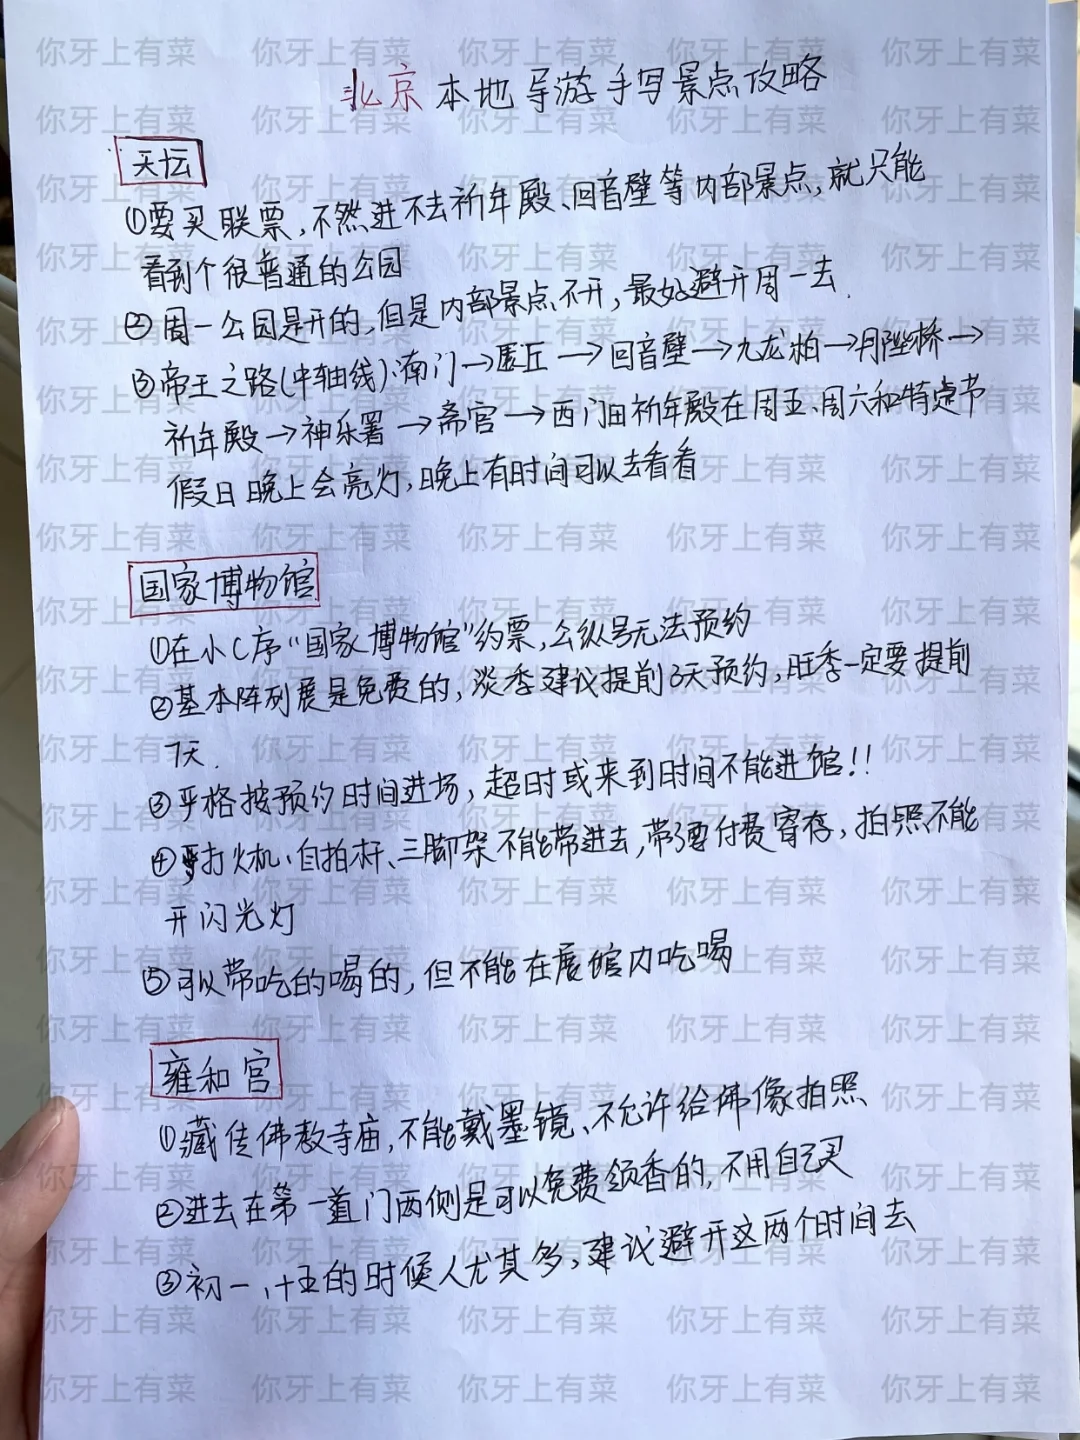 北京本地导游手写景点攻略
天坛
①要买联票,不然进不去祈年殿、回音壁等内部景点,就只能
看到个很普通的公园
②周一公园是开的,但是内部景点不开,最好避开周一去.
③帝王之路(中轴线):南门→圜丘→回音壁→九龙柏→丹陛桥→
祈年殿→神乐署→斋宫→西门 祈年殿在周五、周六和特定节
假日晚上会亮灯,晚上有时间可以去看看
国家博物馆
①在小C序“国家博物馆”约票,公纵号无法预约
②基本陈列展是免费的,淡季建议提前3天预约,旺季一定要提前
7天.
③严格按预约时间进场,超时或未到时间不能进馆!!
④打火机、自拍杆、三脚架不能带进去,带了要付费寄存,拍照不能
开闪光灯
⑤可以带吃的喝的,但不能在展馆内吃喝
雍和宫
①藏传佛教寺庙,不能戴墨镜、不允许给佛像拍照
②进去在第一道门两侧是可以免费领香的,不用自己买
③初一、十五的时候人尤其多,建议避开这两个时间去
你牙上有菜